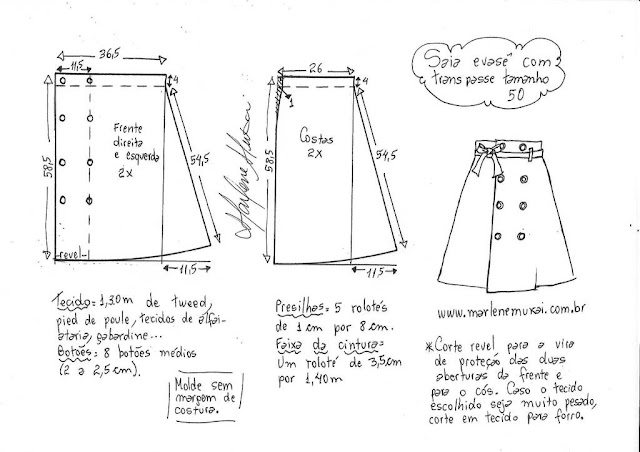 36,5
11,5
4
Frente
direita
e esquerda
2x
58,5
54,5
revel
11,5
26
4
1
Costas
2x
58,5
54,5
11,5
Marlene Mukai
Saia evasê com
transpasse tamanho
50
www.marlenemukai.com.br
Tecido: 1,30m de tweed,
pied de poule, tecidos de alfai-
ataria, gabardine...
Botões: 8 botões médios
(2 a 2,5cm).
Molde sem
margem de
costura.
Presilhas: 5 rolotés
de 1cm por 8cm.
Faixa da cintura:
Um roloté de 3,5cm
por 1,40m
*Corte revel para a vira
de proteção das duas
aberturas da frente e
para o cós. Caso o tecido
escolhido seja muito pesado,
corte em tecido para forro.